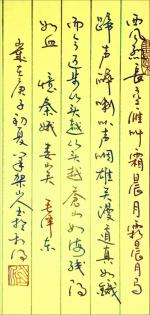 西风烈长空雁叫霜晨月霜晨月马
蹄声碎喇叭声咽雄关漫道真如铁
而今迈步从头越从头越苍山如海残阳
如血 忆秦娥 娄山关 毛泽东
岁在庚子初夏笔架山人书于